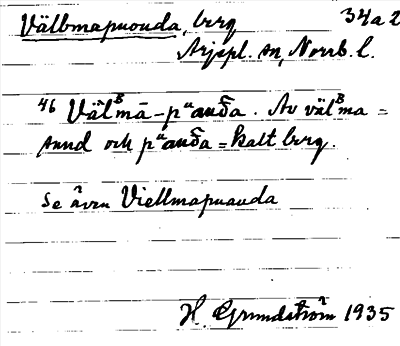 Välbmapuouda, berg 34a2
Arjepl. sn, Norrb. l.
46 Väl ᴮmā-pᵘau͠δa. Av väl ᴮma =
sund och pᵘau͠δa = kalt berg.
Se även Viellmapuauda
H. Grundström 1935